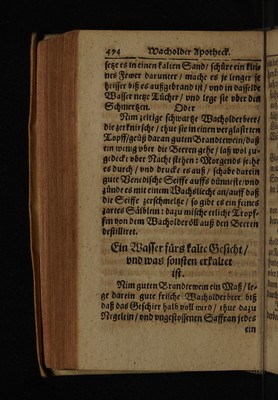 494 Wacholder Apotheck.
setze es in einen kalten Sand/ schüre ein klei-
nes Fewer darunter/ mache es je lenger je
heisser biß es außgebrand ist/ vnd in dasselbe
Wasser netze Tücher/ vnd lege sie vber den
Schmertzen. Oder
Nim zeitige schwartze Wacholderbeer/
die zerknirsche/ thue sie in einen verglasirten
Topff/ geuß daran guten Brandtewein/ daß
ein wenig vber die Beeren gehe/ laß wol zu-
gedeckt vber Nacht stehen: Morgends seihe
es durch/ vnd drucke es auß/ schabe darein
gute Venedische Seiffe auffs dünneste/ vnd
zünde es mit einem Wachsliecht an/ auff daß
die Seiffe zerschmeltze/ so gibt es ein feines
zartes Sälblein: dazu mische etliche Tropf-
fen von dem Wacholderöll auß den Beeren
destilliret.
Ein Wasser fürs kalte Gesicht/
vnd was sonsten erkaltet
ist.
Nim guten Brandtewein ein Maß/ le-
ge darein gute frische Wacholderbeer biß
daß das Geschier halb voll wird/ thue dazu
Negelein/ vnd vngestossenen Saffran jedes
ein